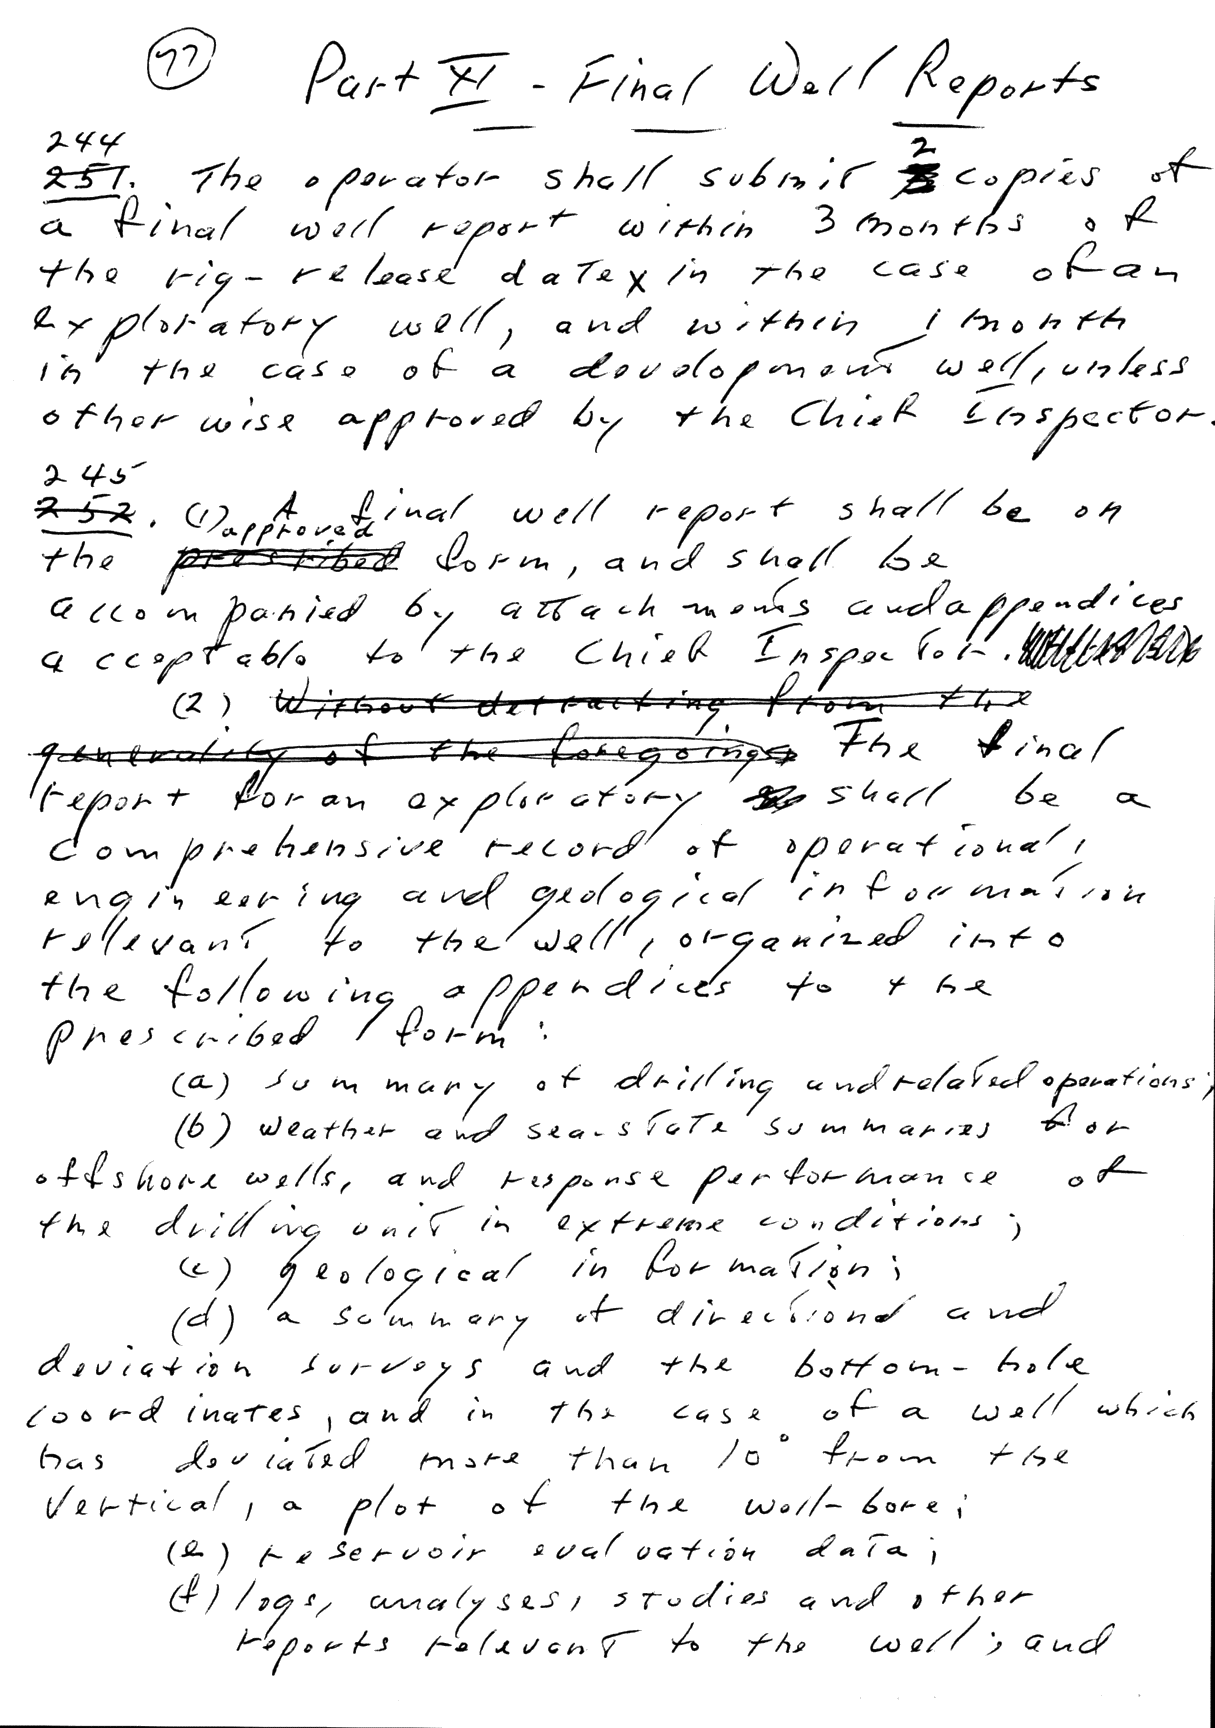 77
Part XI - Final Well Reports
244
251. The operator shall submit 2 copies of
a final well report within 3 months of
the rig-release date in the case of an
exploratory well, and within 1 month
in the case of a development well, unless
otherwise approved by the Chief Inspector.
245
252. (1) A final well report shall be on
approved
the prescribed form, and shall be
accompanied by attachments and appendices
acceptable to the Chief Inspector.
(2) Without detracting from the
generality of the foregoing, The final
report for an exploratory shall be a
comprehensive record of operational,
engineering and geological information
relevant to the well, organized into
the following appendices to the
prescribed form:
(a) summary of drilling and related operations;
(b) weather and sea-state summaries for
offshore wells, and response performance of
the drilling unit in extreme conditions;
(c) geological information;
(d) a summary of directional and
deviation surveys and the bottom-hole
coordinates, and in the case of a well which
has deviated more than 10° from the
vertical, a plot of the well-bore;
(e) reservoir evaluation data;
(f) logs, analyses, studies and other
reports relevant to the well; and